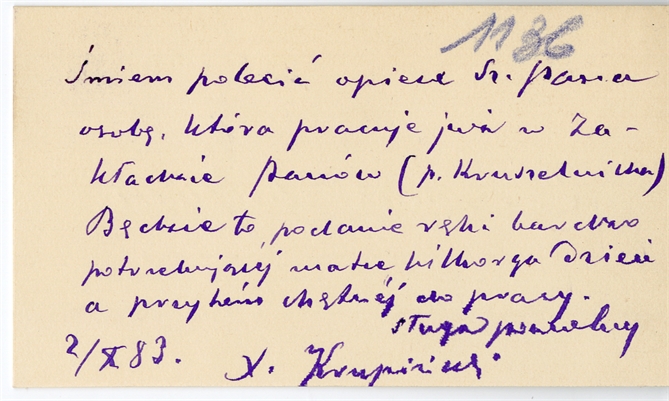 1136
Śmiem polecić opiece Sz. Pana
osobę, która pracuje już w Za-
kładzie Panów (p. Kruszelnicka)
Będzie to podanie ręki bardzo
potrzebującej matce kilkorga dzieci
a przytem chętnéj do pracy.
sługa powolny
2/X 83. X. Krupiński